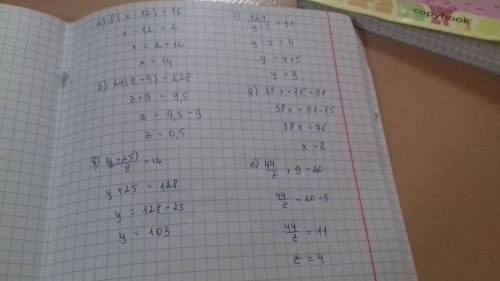 а) 8(x-12)=16
x-12=2
x=2+12
x=14
б) 24(z+9)=228
z+9=9,5
z=9,5-9
z=0,5
в) (y+25)/8=16
y+25=128
y=128-25
y=103
y=4+5
y=9
д) 38x+15=91
38x=91-15
38x=76
x=2
е) 44/z+9=20
44/z=20-9
44/z=11
z=4
copybook